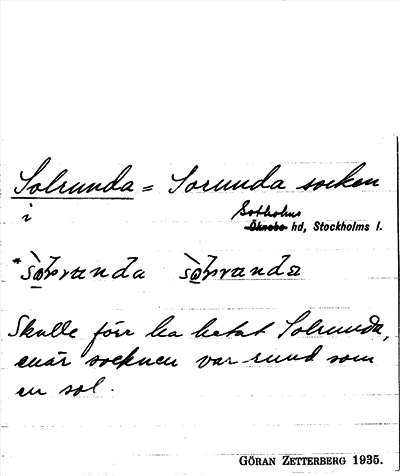 Solrunda = Sorunda socken
i Sotholms
Öknebo hd, Stockholms l.
Skulle förr ha hetat Solrunda,
enär socknen var rund som
en sol.
GÖRAN ZETTERBERG 1935.